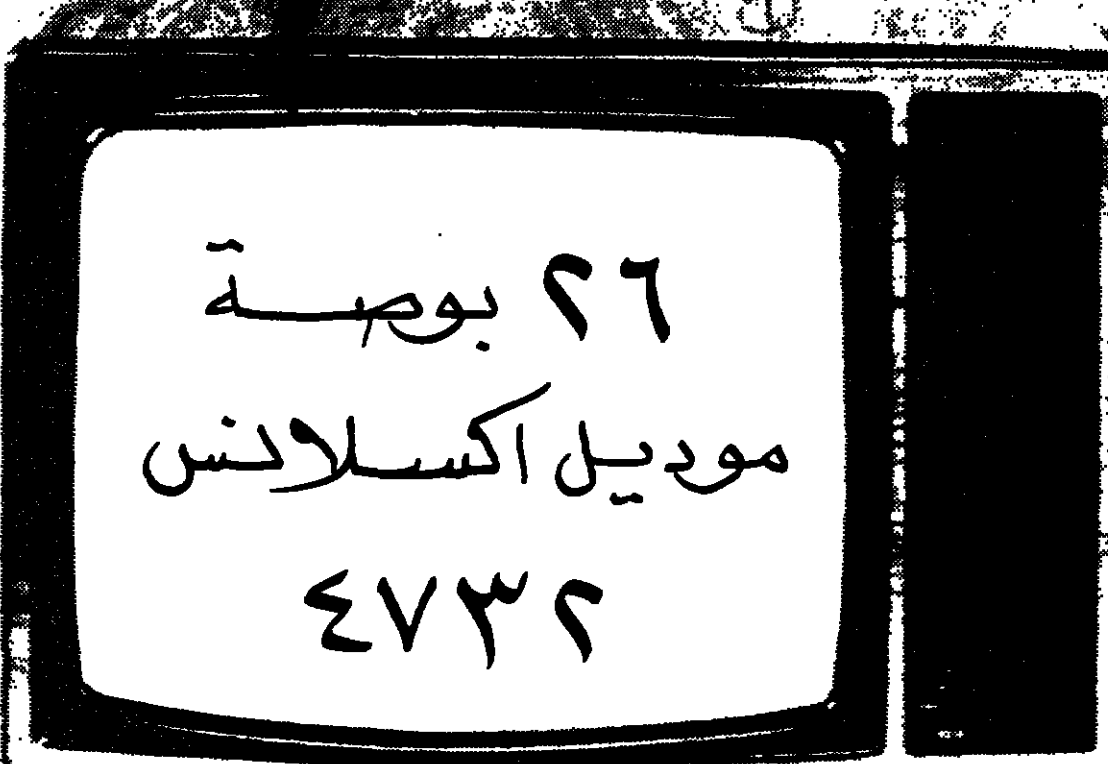 ٢٦ بوصة
موديل اكسلانس
٤٧٣٢